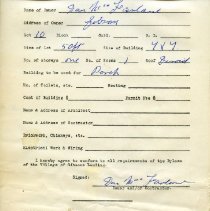 Name of Owner Dan McFarland
Address of Owner Gibsons
Lot 10 Block Subd. D.L.
Size of Lot 50ft Size of Building 7x7
No. of storeys one No. of Rooms 1 Roof
Building to be used for Porch
No. of toilets, etc. Heating
Cost of Building $ Permit Fee $
Name and Address of Architect
Name and Address of Contractor
Brickwork, Chimneys, etc.
Electrical Work & Wiring
I hereby agree to conform to all requirements of the Bylaws
of the Village of Gibsons Landing.
Signed: Dan McFarland
Owner and/or Contractor.